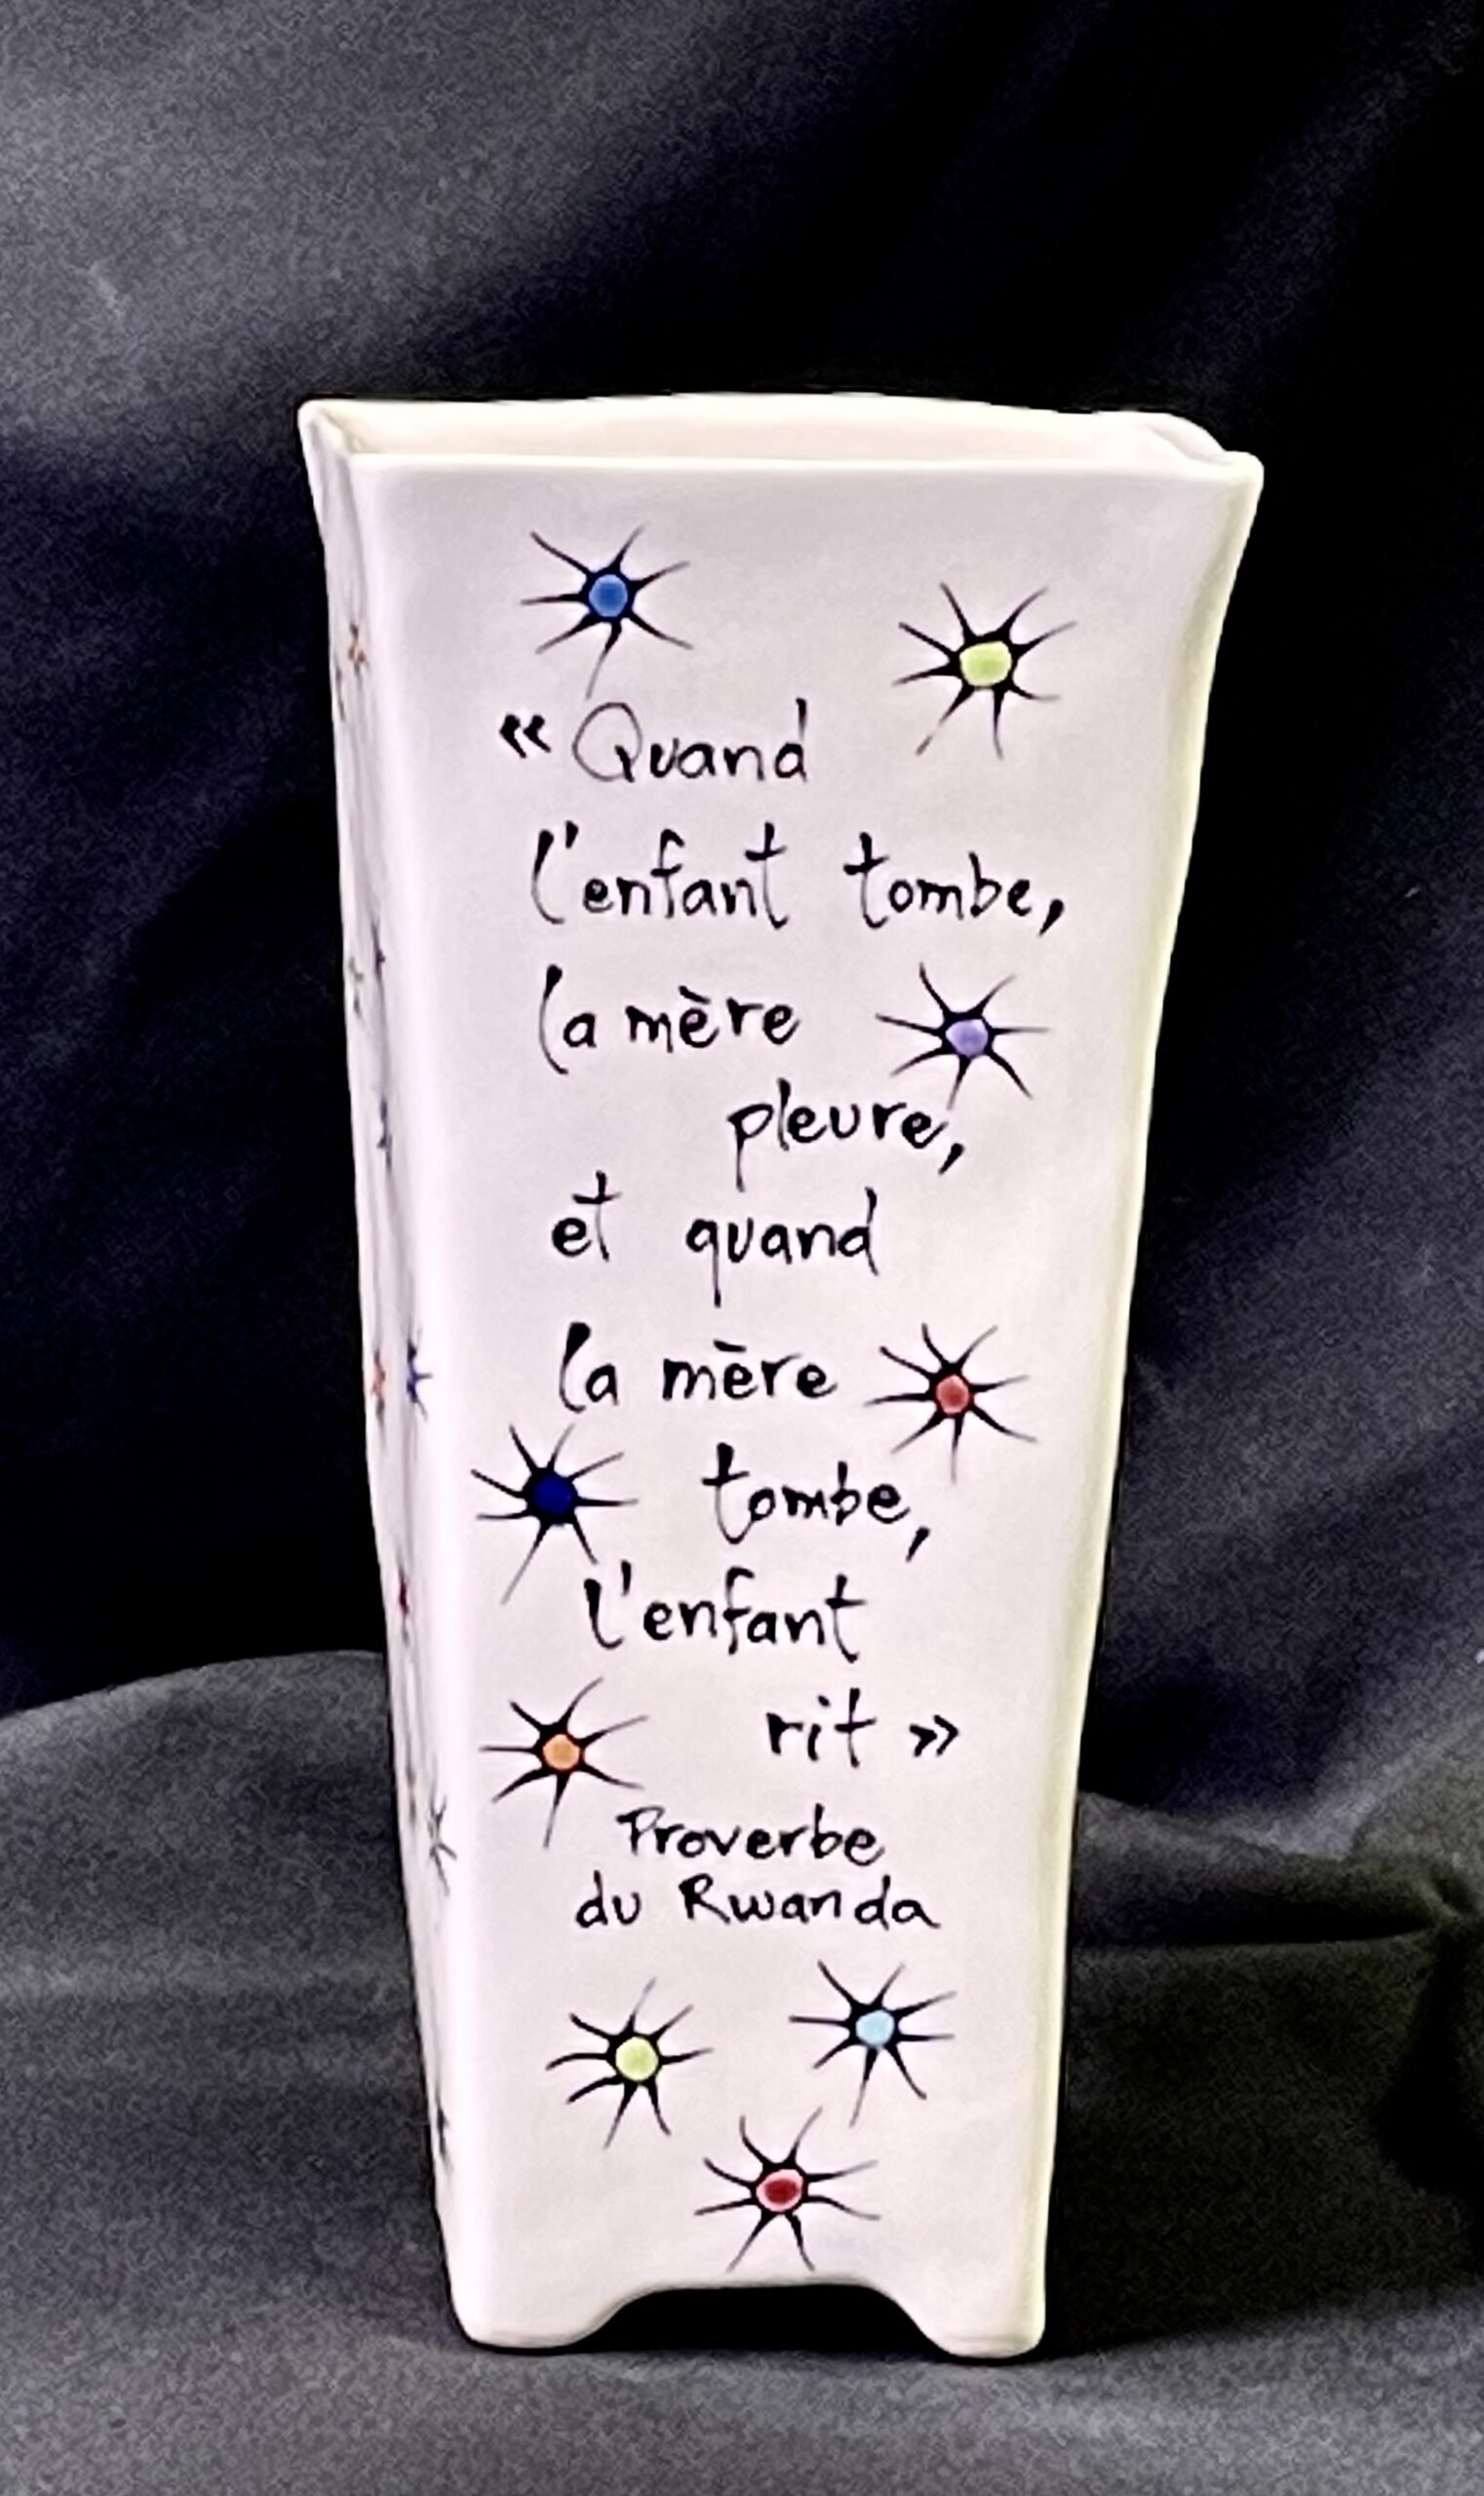 « Quand
l'enfant tombe,
la mère
pleure,
et quand
la mère
tombe,
l'enfant
rit »
Proverbe
du Rwanda